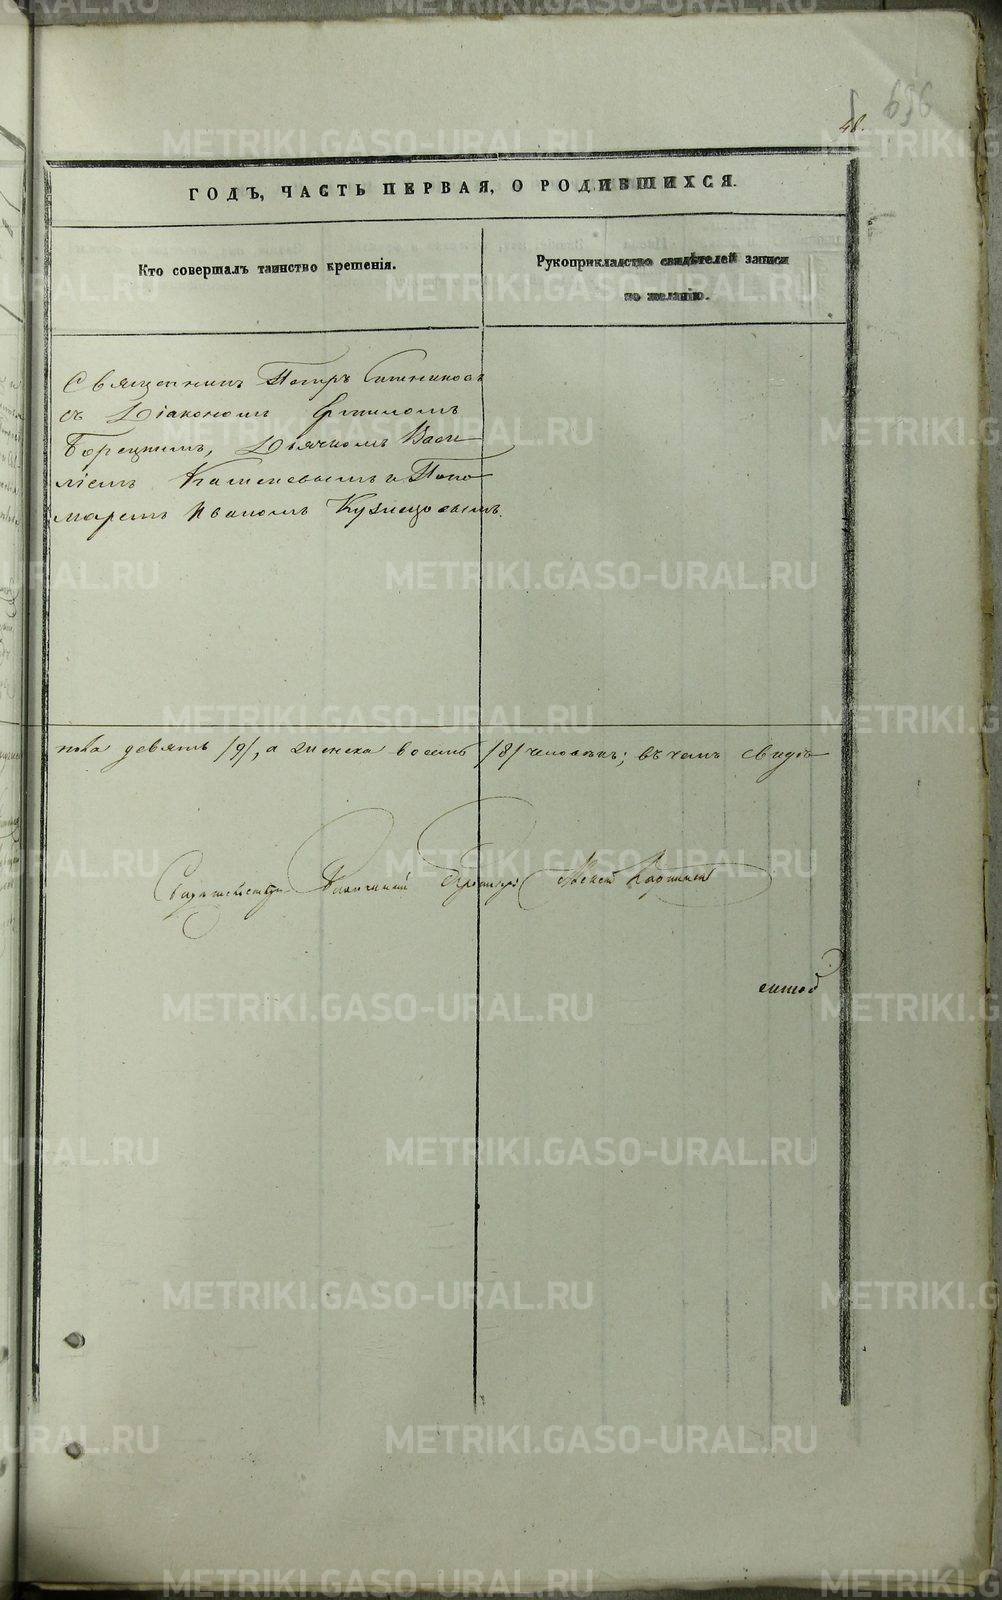 696
48.
ГОДЪ, ЧАСТЬ ПЕРВАЯ, О РОДИВШИХСЯ.
Кто совершалъ таинство крещенія.
Рукоприкладство свидѣтелей записи
по желанію.
Священникъ Петръ Ситниковъ
съ Діакономъ
Борецкимъ, Дьячкомъ Васи
ліемъ Каменевымъ и Поно
маремъ Иваномъ Кузнецовымъ.
пола девять /9/, а женска восемь /8/ человѣкъ; въ чемъ свидѣ
Свидѣтельству Благочинный
METRIKI.GASO-URAL.RU